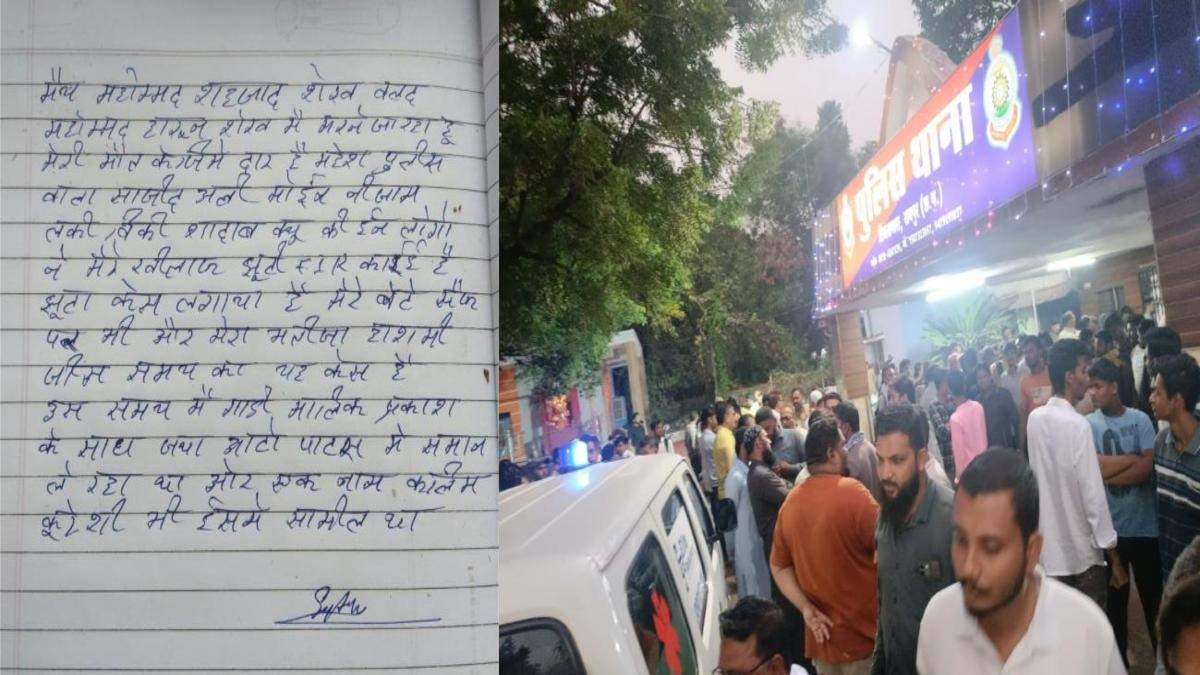 मैय महोम्मद शहजाद शेख वलद
महोम्मद हारून शेख मै मरने जा रहा हू
मेरी मौत के जिमे दार है महेश पुलीस
वाला साजीद अली
लकी विकी शादाब क्यू की ईन लोगो
ने मेरे खीलाफ झूटी FIR काईई है
झूटा केस लगाया है मेरे बेटे सैफ
पर भी और मेरा भतीजा हाशमी
जीस समय का यह केस है
इस समय मै गाडी मालिक प्रकाश
के साथ जया ओटो पाटस मे समान
ले रहा था ओर एक नाम कलीम
कूरेशी भी ईसमे सामील था
पुलिस थाना
रायपुर (छ.ग.)